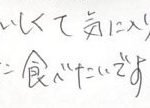 いしくて気に入り
に食べたいです